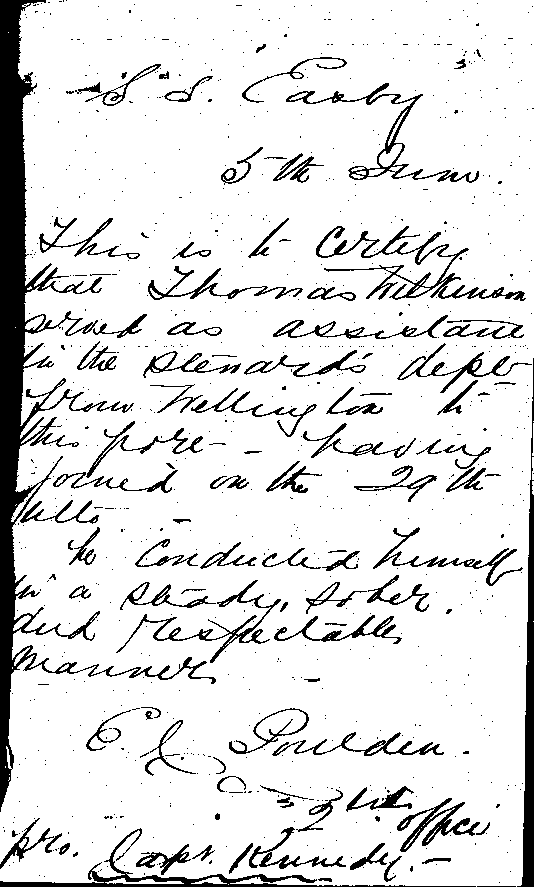 S. S. Easby
5th June.
This is to Certify
that Thomas Wilkinson
served as assistant
in the steward's dept
from Wellington to
this port - having
joined on the 29th
ulto -
he conducted himself
in a steady, sober.
and respectable
manner. -
E. J. Poulden.
2nd officer
pro. Capt. Kennedy. -